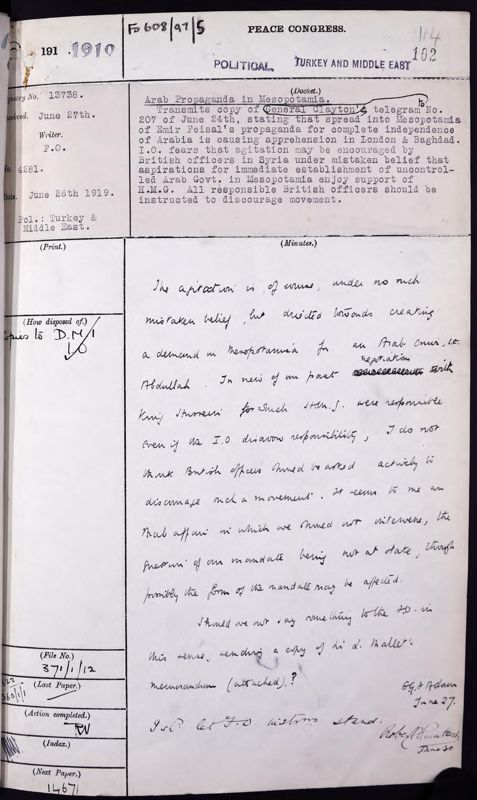 Fo 608/97/5
PEACE CONGRESS.
114
102
191 1919
POLITICAL
TURKEY AND MIDDLE EAST
No. 13738.
June 27th.
Writer.
F.O.
No. 4281.
Date. June 26th 1919.
Pol.: Turkey &
Middle East.
(Docket.)
Arab Propaganda in Mesopotamia.
Transmits copy of General Clayton's telegram No.
207 of June 24th, stating that spread into Mesopotamia
of Emir Feisal's propaganda for complete independence
of Arabia is causing apprehension in London & Baghdad.
I.O. fears that agitation may be encouraged by
British officers in Syria under mistaken belief that
aspirations for immediate establishment of uncontrol-
led Arab Govt. in Mesopotamia enjoy support of
H.M.G. All responsible British officers should be
instructed to discourage movement.
(Print.)
(How disposed of.)
Copies to D.M.I
I.O
(Minutes.)
The agitation is, of course, under no such
mistaken belief, but directed towards creating
a demand in Mesopotamia for an Arab
Abdullah. In view of our past negotiation with
King Hussein for which H.M.G. were responsible
even if the I.O. disavow responsibility, I do not
think British officers should be asked actively to
discourage such a movement. It seems to me an
Arab affair in which we should not intervene, the
question of our mandate being not at stake, though
possibly the form of the mandate may be affected.
Should we not say something to the F.O. in
this sense, sending a copy of Sir L. Mallet's
memorandum (attached)?
June 27.
I shd. let F.O. instrns stand.
June 30
(File No.)
371/1/12
(Last Paper.)
(Action completed.)
(Index.)
(Next Paper.)
14671